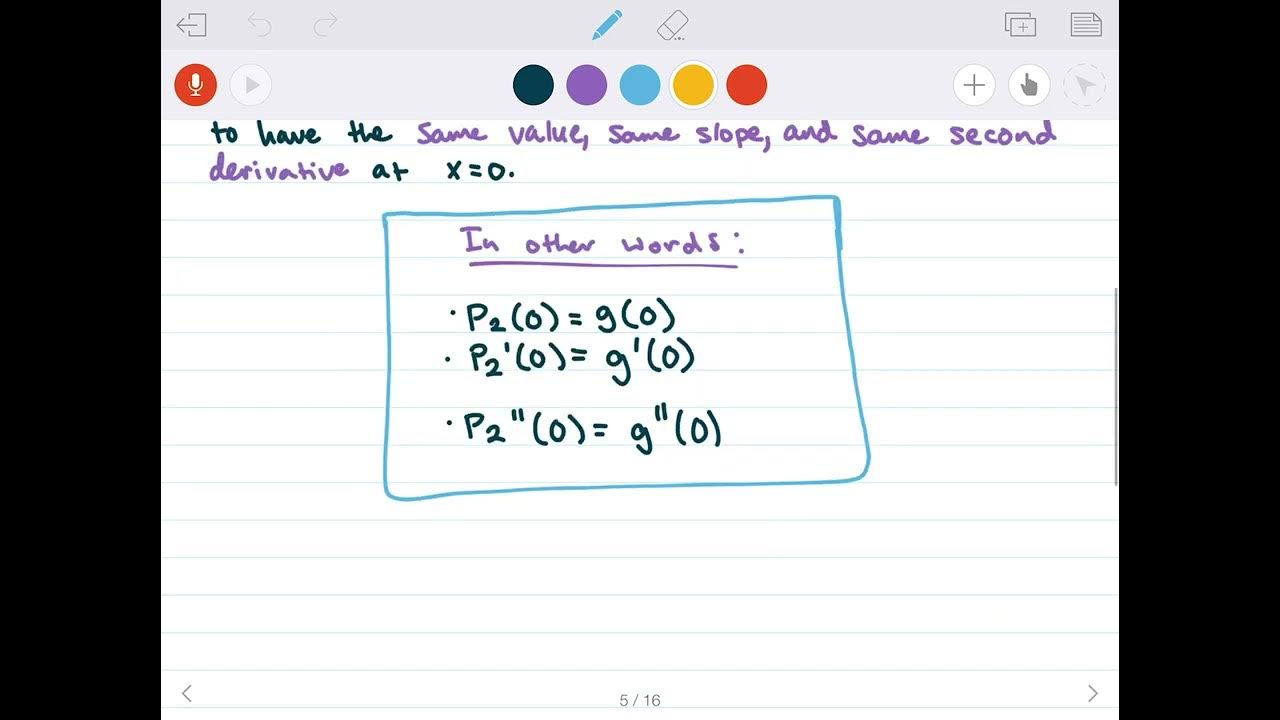 to have the same value, same slope, and same second
derivative at x=0.
In other words:
· P₂(0) = g(0)
· P₂'(0) = g'(0)
· P₂"(0) = g"(0)
5 / 16